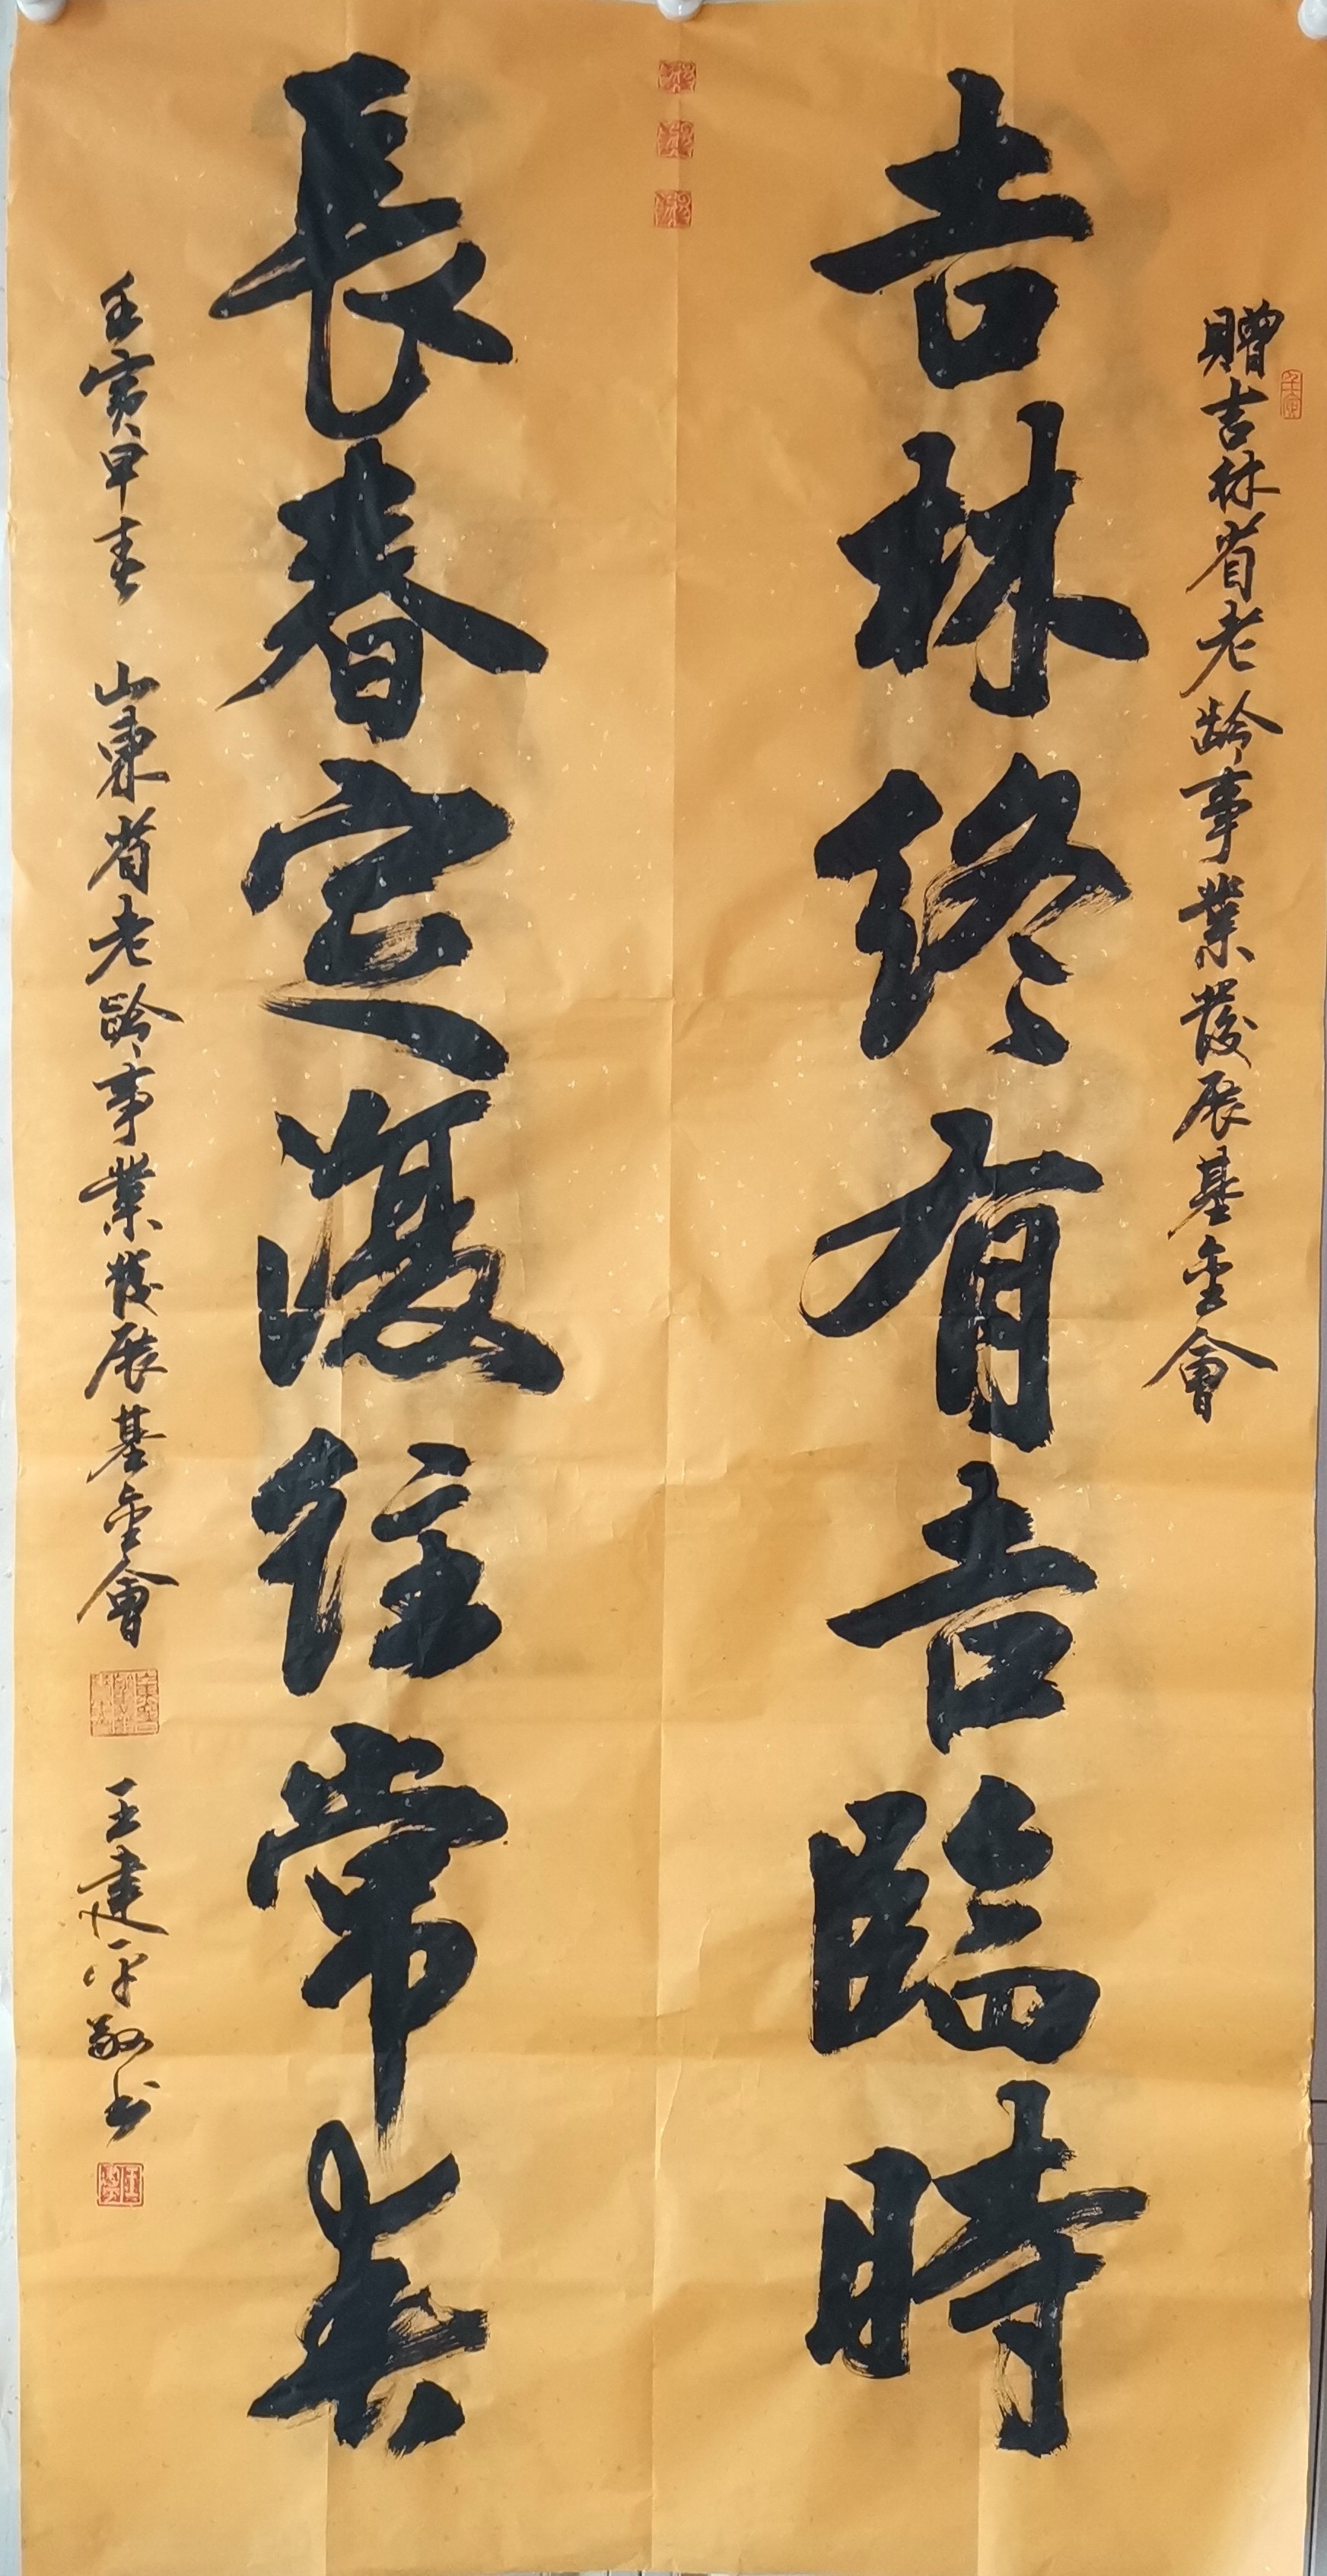 贈吉林省老齡事業發展基金會
壬寅
吉林终有吉臨時
長春定復往常
壬寅早春 山東省老齡事業發展基金會 王建平敬书